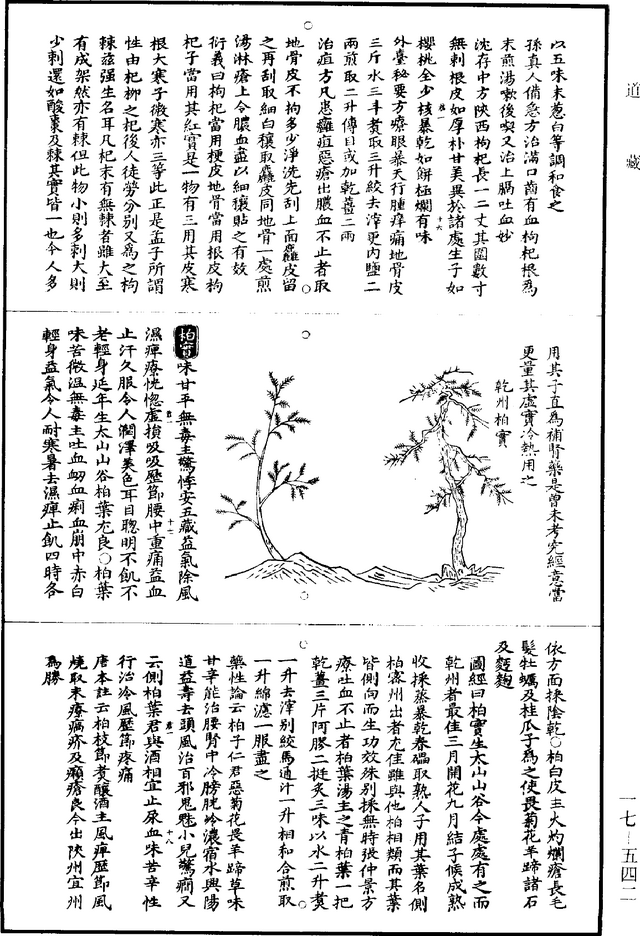 道藏
以五味末葱白等調和食之
孫真人備急方治滿口齒有血枸杞根為
末煎湯漱後喫又治上膈吐血妙
沈存中方陝西枸杞長一二丈其圍數寸
無刺根皮如厚朴甘美異於諸處生子如
櫻桃全少核暴乾如餅極爛有味
外臺秘要方療眼暴天行腫痒痛地骨皮
三斤水三斗煑取三升絞去滓更內鹽二
兩煎取二升傅目或加乾薑二兩
治疽方凡患癰疽惡瘡出膿血不止者取
地骨皮不拘多少淨洗先刮上面麤皮留
之再刮取細白穰取麤皮同地骨一處煎
湯淋瘡上令膿血盡以細穰貼之有效
衍義曰枸杞當用梗皮地骨當用根皮枸
杞子當用其紅實是一物有三用其皮寒
根大寒子微寒亦三等此正是孟子所謂
性由杞柳之杞後人徒勞分別又為之枸
棘茲強生名耳凡杞末有無棘者雖大至
有成架然亦有棘但此物小則多刺大則
少刺還如酸棗及棘其實皆一也今人多
用其子直為補腎藥是曾未考究經意當
更量其虛實冷熱用之
乾州柏實
柏實味甘平無毒主驚悸安五藏益氣除風
濕痺療恍惚虛損吸吸歷節腰中重痛益血
止汗久服令人潤澤美色耳目聰明不飢不
老輕身延年生太山山谷柏葉尤良○柏葉
味苦微溫無毒主吐血衂血痢血崩中赤白
輕身益氣令人耐寒暑去濕痺止飢四時各
依方面採陰乾○柏白皮主火灼爛瘡長毛
髮牡蠣及桂瓜子為之使畏菊花羊蹄諸石
及麪麴
圖經曰柏實生太山山谷今處處有之而
乾州者最佳三月開花九月結子候成熟
收採蒸暴乾舂礧取熟人子用其葉名側
柏密州出者尤佳雖與他柏相類而其葉
皆側向而生功效殊別採無時張仲景方
療吐血不止者柏葉湯主之青柏葉一把
乾薑三片阿膠二挺炙三味以水二升煑
一升去滓別絞馬通汁一升相和合煎取
一升綿濾一服盡之
藥性論云柏子仁君惡菊花畏羊蹄草味
甘辛能治腰腎中冷膀胱冷濃宿水興陽
道益壽去頭風治百邪鬼魅小兒驚癇又
云側柏葉君與酒相宜止尿血味苦辛性
行治冷風歷節疼痛
唐本註云柏枝節煑釀酒主風痺歷節風
燒取末療瘑疥及癩瘡良今出陝州宜州
為勝
一七—五四二